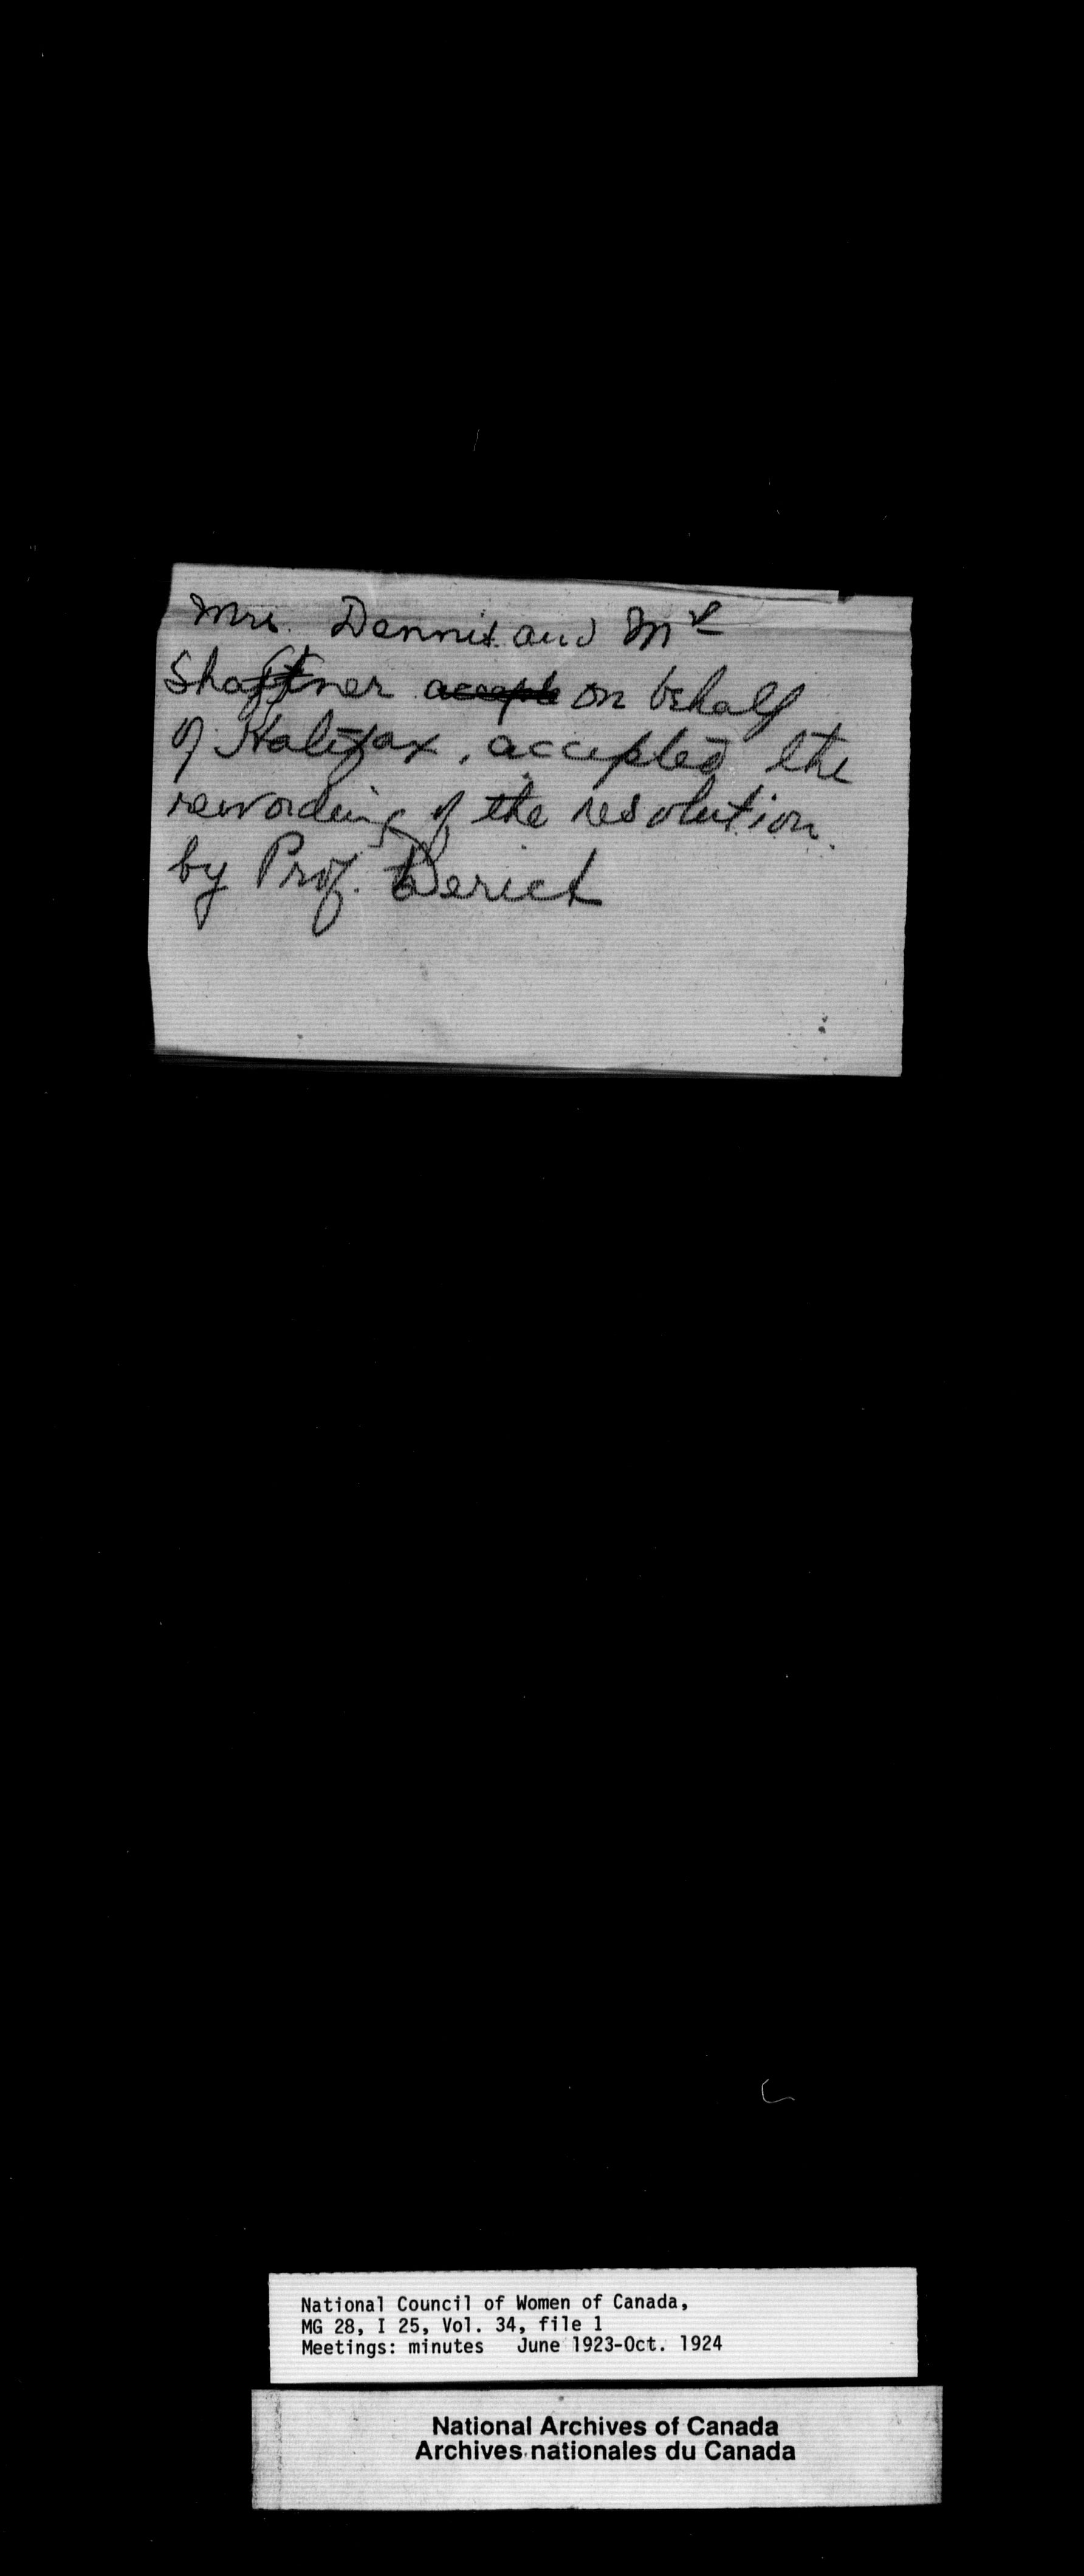 Mrs. Dennis and Mrs
Shaffner accepte on behalf
of Halifax, accepted the
rewording of the resolution
by Prof. Derick
National Council of Women of Canada,
MG 28, I 25, Vol. 34, file 1
Meetings: minutes June 1923-Oct. 1924
National Archives of Canada
Archives nationales du Canada